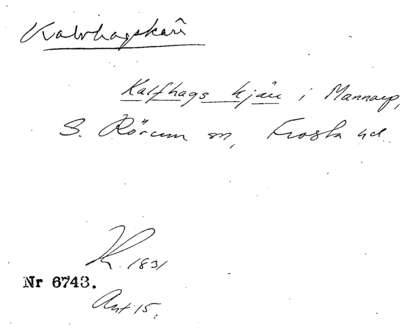 Kalvhagskärr
Kalfhags kjärr i Mannarp,
S. Rörum sn, Frosta hd
K. 1831
Nr 6743.
Akt 15.